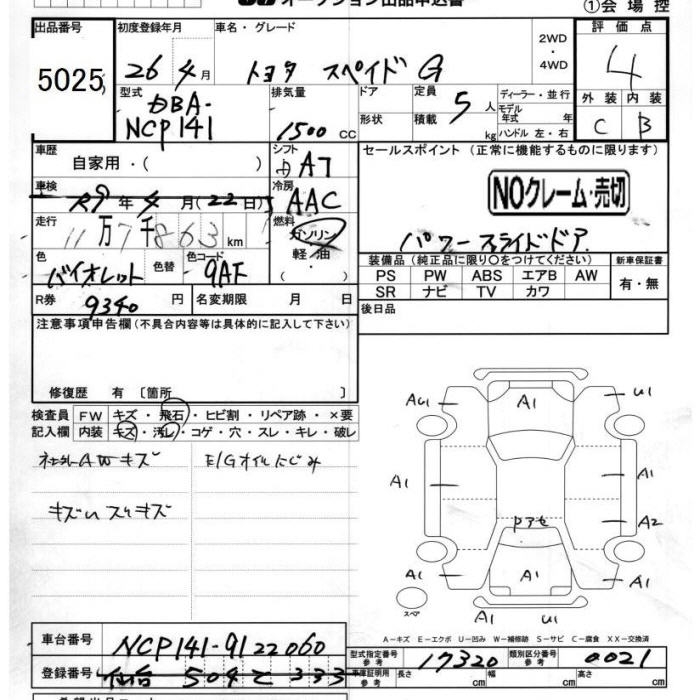 オークション出品申込書
①会場控
出品番号 初度登録年月 車名・グレード 評価点
5025 26年4月 トヨタ スペイド G 2WD・4WD 4
型式 排気量 ドア 定員 5人 ディーラー・並行 外装 内装
DBA-NCP141 1500 cc 形状 積載 kg モデル年式 年式 ハンドル 左・右 C B
車歴 シフト セールスポイント (正常に機能するものに限ります)
自家用・( ) A7
車検 冷房 NOクレーム・売切
R9年4月(22日) AAC
走行 燃料
11万7千863km ガソリン 軽油・( ) パワースライドドア
色 色替 色コード 装備品(純正品に限り○をつけてください) 新車保証書
バイオレット 9AF PS PW ABS エアB AW 有・無
R券 9340円 名変期限 月 日 SR ナビ TV カワ
注意事項申告欄(不具合内容等は具体的に記入して下さい) 後日品
修復歴 有 〔箇所 〕
検査員 FW キズ・飛石・ヒビ割・リペア跡・×要
記入欄 内装 キズ・汚レ・コゲ・穴・スレ・キレ・破レ
AWキズ E/Gオイルにじみ
A1 U1
A1 A1
A2
A1 A1 A1
スペア A1 U1
A-キズ E-エクボ U-凹み W-補修跡 S-サビ C-腐食 XX-交換済
車台番号 NCP141-9122060 型式指定番号 参考 17320 類別区分番号 参考 0021
登録番号 仙台 504 333 車庫証明用 参考 長さ cm 幅 cm 高さ cm